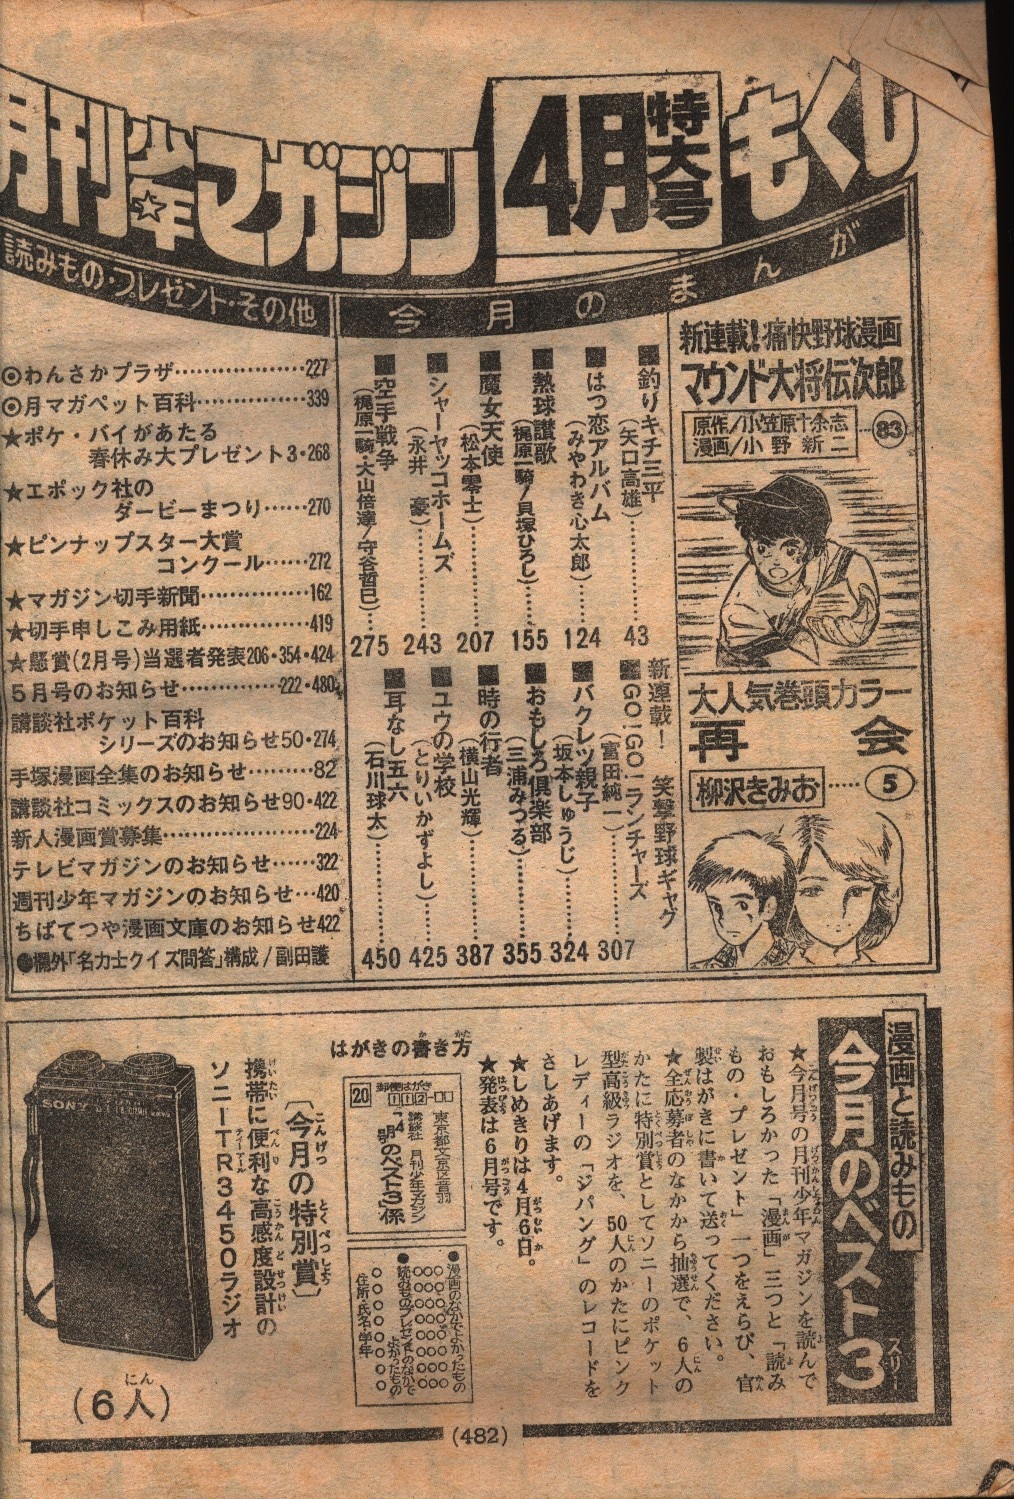 月刊少年マガジン
4月
特大号
もくじ
今月のまんが
新連載!痛快野球漫画
マウンド大将伝次郎
原作/小笠原十余志
漫画/小野新二
83
大人気巻頭カラー
再会
柳沢きみお……5
■釣りキチ三平(矢口高雄)……43
■はつ恋アルバム(みやわき心太郎)……124
■熱球讃歌(梶原一騎/貝塚ひろし)……155
■魔女天使(松本零士)……207
■シャーヤッコホームズ(永井豪)……243
■空手戦争(梶原一騎・大山倍達/守谷哲巳)……275
新連載! 笑撃野球ギャグ
■GO!GO!ランチャーズ(富田純一)……307
■バクレツ親子(坂本しゅうじ)……324
■おもしろ倶楽部(三浦みつる)……355
■時の行者(横山光輝)……387
■ユウの学校(とりいかずよし)……425
■耳なし五六(石川球太)……450
読みもの・プレゼント・その他
◎わんさかプラザ……227
◎月マガペット百科……339
★ポケ・バイがあたる
春休み大プレゼント3・268
★エポック社の
ダービーまつり……270
★ピンナップスター大賞
コンクール……272
★マガジン切手新聞……162
★切手申しこみ用紙……419
★懸賞(2月号)当選者発表206・354・424
5月号のお知らせ……222・480
講談社ポケット百科
シリーズのお知らせ50・274
手塚漫画全集のお知らせ……82
講談社コミックスのお知らせ90・422
新人漫画賞募集……224
テレビマガジンのお知らせ……322
週刊少年マガジンのお知らせ…420
ちばてつや漫画文庫のお知らせ422
●欄外「名力士クイズ問答」構成/副田護
漫画と読みもの
今月のベスト3
スリー
★今月号の月刊少年マガジンを読んで
おもしろかった「漫画」三つと「読み
もの・プレゼント」一つをえらび、官
製はがきに書いて送ってください。
★全応募者のなかから抽選で、6人の
かたに特別賞としてソニーのポケット
型高級ラジオを、50人のかたにピンク
レディーの「ジパング」のレコードを
さしあげます。
★しめきりは4月6日。
★発表は6月号です。
はがきの書き方
郵便はがき
112-□□
20
東京都文京区音羽
講談社 月刊少年マガジン
「4月号のベスト3」係
●漫画のなかでよかったもの
○○○○○○○
○○○○○○○
○○○○○○○
●読みものプレゼントのなかで
よかったもの
○○○○○○○
住所・氏名・学年
〔今月の特別賞〕
携帯に便利な高感度設計の
ソニーTR3450ラジオ
SONY
(6人)
(482)